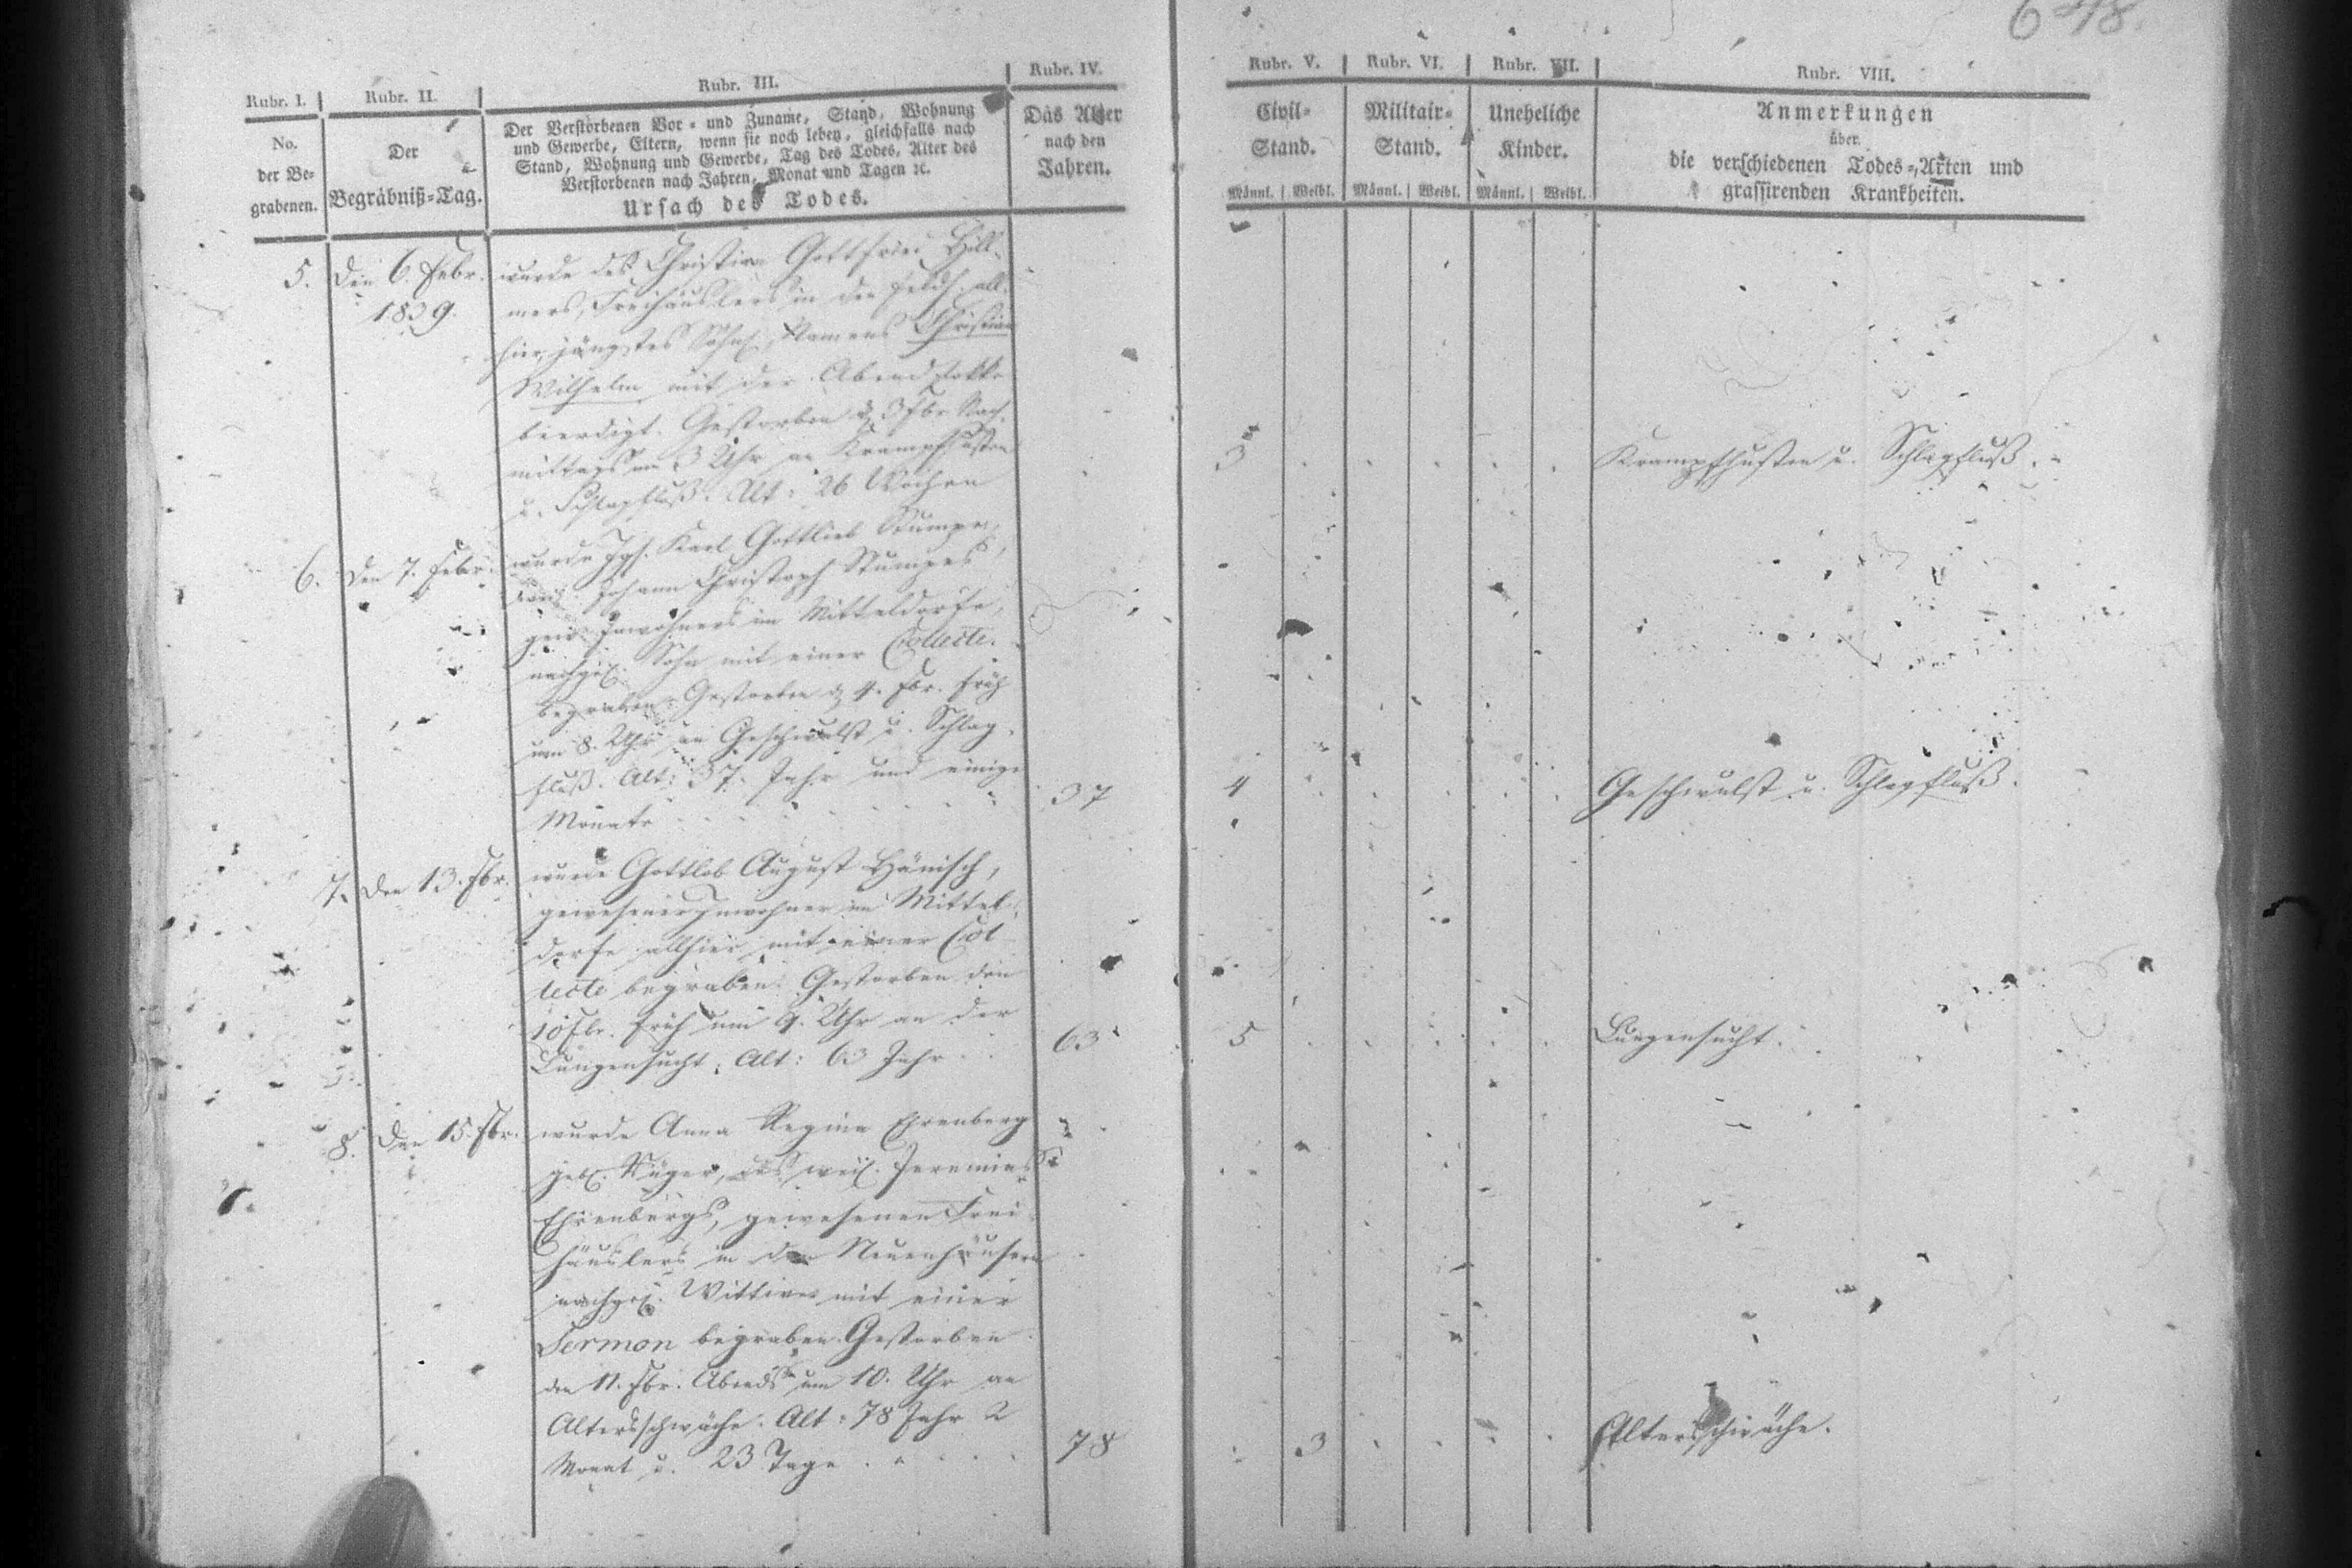 648.
Rubr. I. Rubr. II. Rubr. III. Rubr. IV. Rubr. V. Rubr. VI. Rubr. VII. Rubr. VIII.
No.
der Be-
grabenen.
Der
Begräbniß-Tag.
Der Verstorbenen Vor- und Zuname, Stand, Wohnung
und Gewerbe, Eltern, wenn sie noch leben, gleichfalls nach
Stand, Wohnung und Gewerbe, Tag des Todes, Alter des
Verstorbenen nach Jahren, Monat und Tagen ꝛc.
Ursach des Todes.
Das Alter
nach den
Jahren.
Civil-
Stand.
Männl. Weibl.
Militair-
Stand.
Männl. Weibl.
Uneheliche
Kinder.
Männl. Weibl.
Anmerkungen
über
die verschiedenen Todes-Arten und
grassirenden Krankheiten.
5. Den 6. Febr. wurde des Christian Gottfried Hill-
1839. mers, Freihäuslers in den Feldh. all-
hier, jüngstes Söhnl. Namens Christian
Wilhelm mit der Abendglocke
beerdigt. Gestorben d. 3 Fbr. Nach-
mittags um 3 Uhr an Krampfhusten
u. Schlagfluß. Alt: 26 Wochen
3 Krampfhusten u. Schlagfluß.
6. Den 7. Febr. wurde Igs. Karl Gottlieb Stumpe,
Johann Christoph Stumpes,
gew. Inwohners im Mitteldorfe,
nachgel. Sohn mit einer Collecte
begraben. Gestorben d. 4. Fbr. früh
um 8. Uhr an Geschwulst u. Schlag-
fluß. Alt: 37. Jahr und einige
Monate 37 4 Geschwulst u. Schlagfluß.
7. Den 13. Fbr. wurde Gottlob August Hänisch,
gewesener Inwohner im Mittel-
dorfe allhier mit einer Col-
lecte begraben. Gestorben den
10 Fbr. früh um 9. Uhr an der
Lungensucht. Alt: 63 Jahr 63 5 Lungensucht.
8. Den 15. Fbr. wurde Anna Regina Ehrenberg
geb. des weil. Jeremias
Ehrenbergs, gewesenen Frei-
häuslers in den Neuenhäusern
nachgel. Wittwe mit einer
Sermon begraben. Gestorben
den 11. Fbr. Abends um 10. Uhr an
Altersschwäche. Alt: 78 Jahr 2
Monat u. 23 Tage 78 3 Altersschwäche.